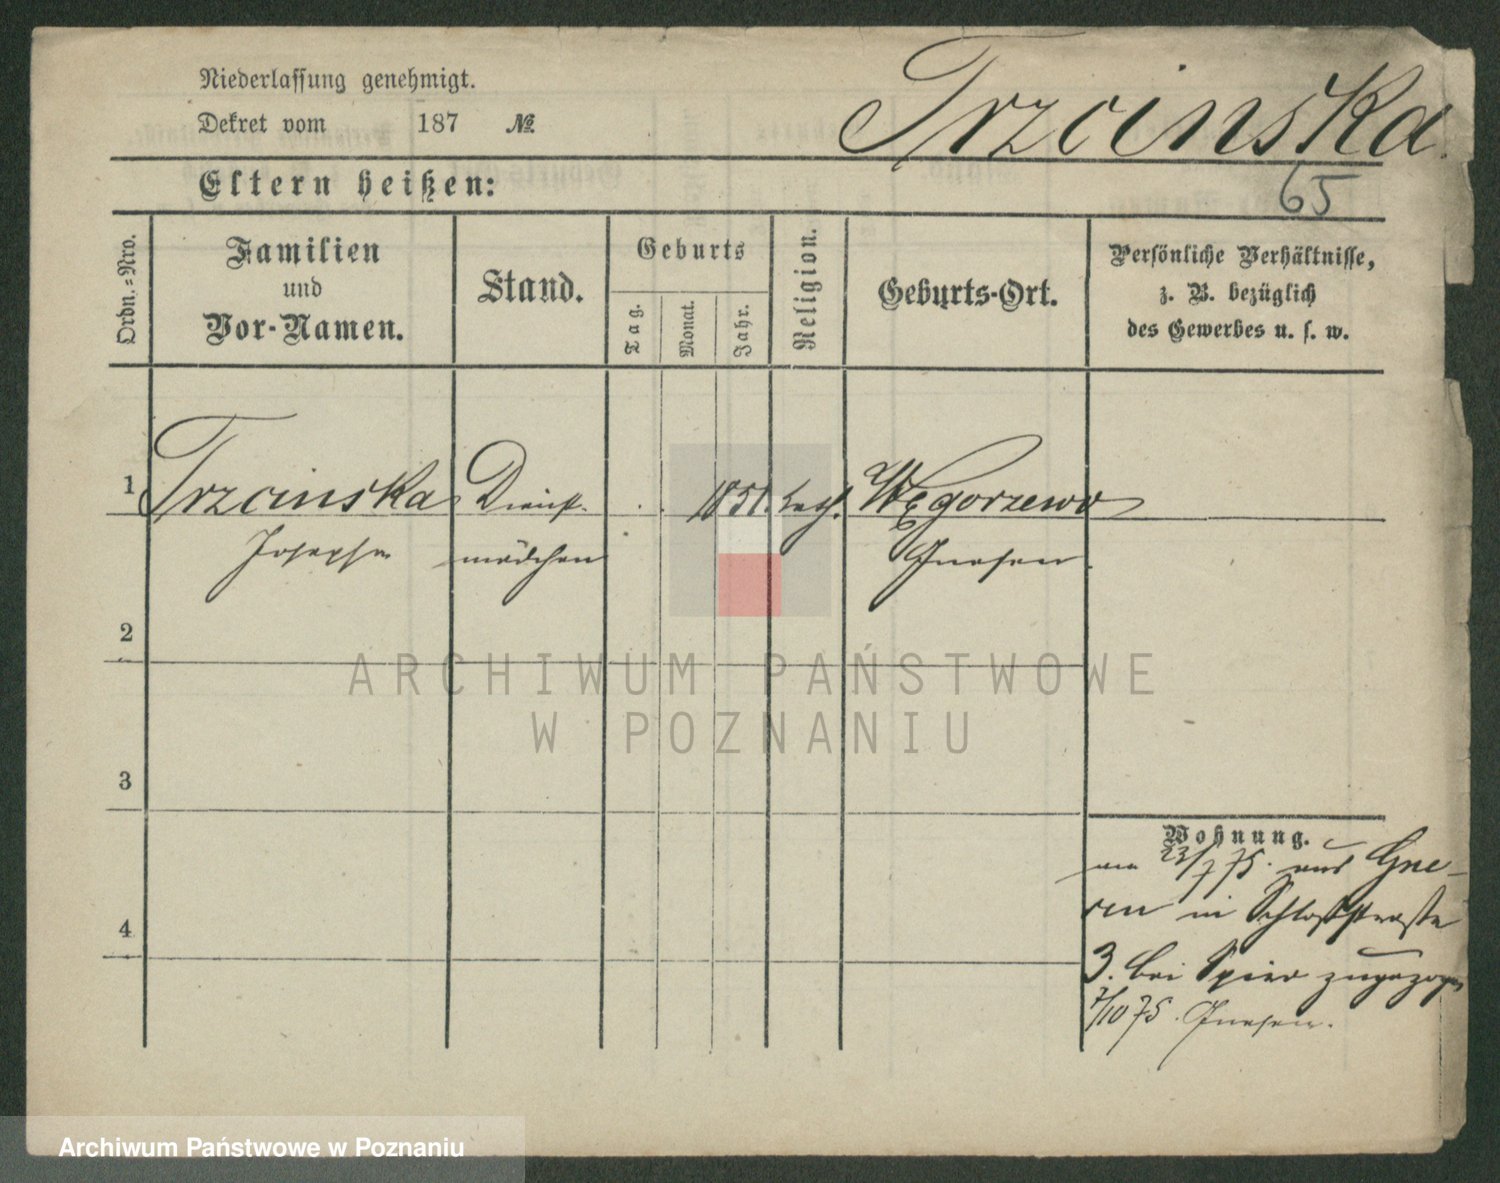 Niederlassung genehmigt.
Dekret vom 187 №
Trzcinska
65
Eltern heißen:
Ordn.-Nro.
Familien
und
Vor-Namen.
Stand.
Geburts
Tag.
Monat.
Jahr.
Religion.
Geburts-Ort.
Persönliche Verhältnisse,
z. B. bezüglich
des Gewerbes u. s. w.
1 Trzcinska Dienst- 1851. kath. Węgorzewo
Josepha mädchen Gnesen
2
ARCHIWUM PAŃSTWOWE
W POZNANIU
3
Wohnung.
am 23/7 75. aus Gne-
sen in Schloßstraße
4
3. bei zugezogen
7/10 75. Gnesen.
Archiwum Państwowe w Poznaniu